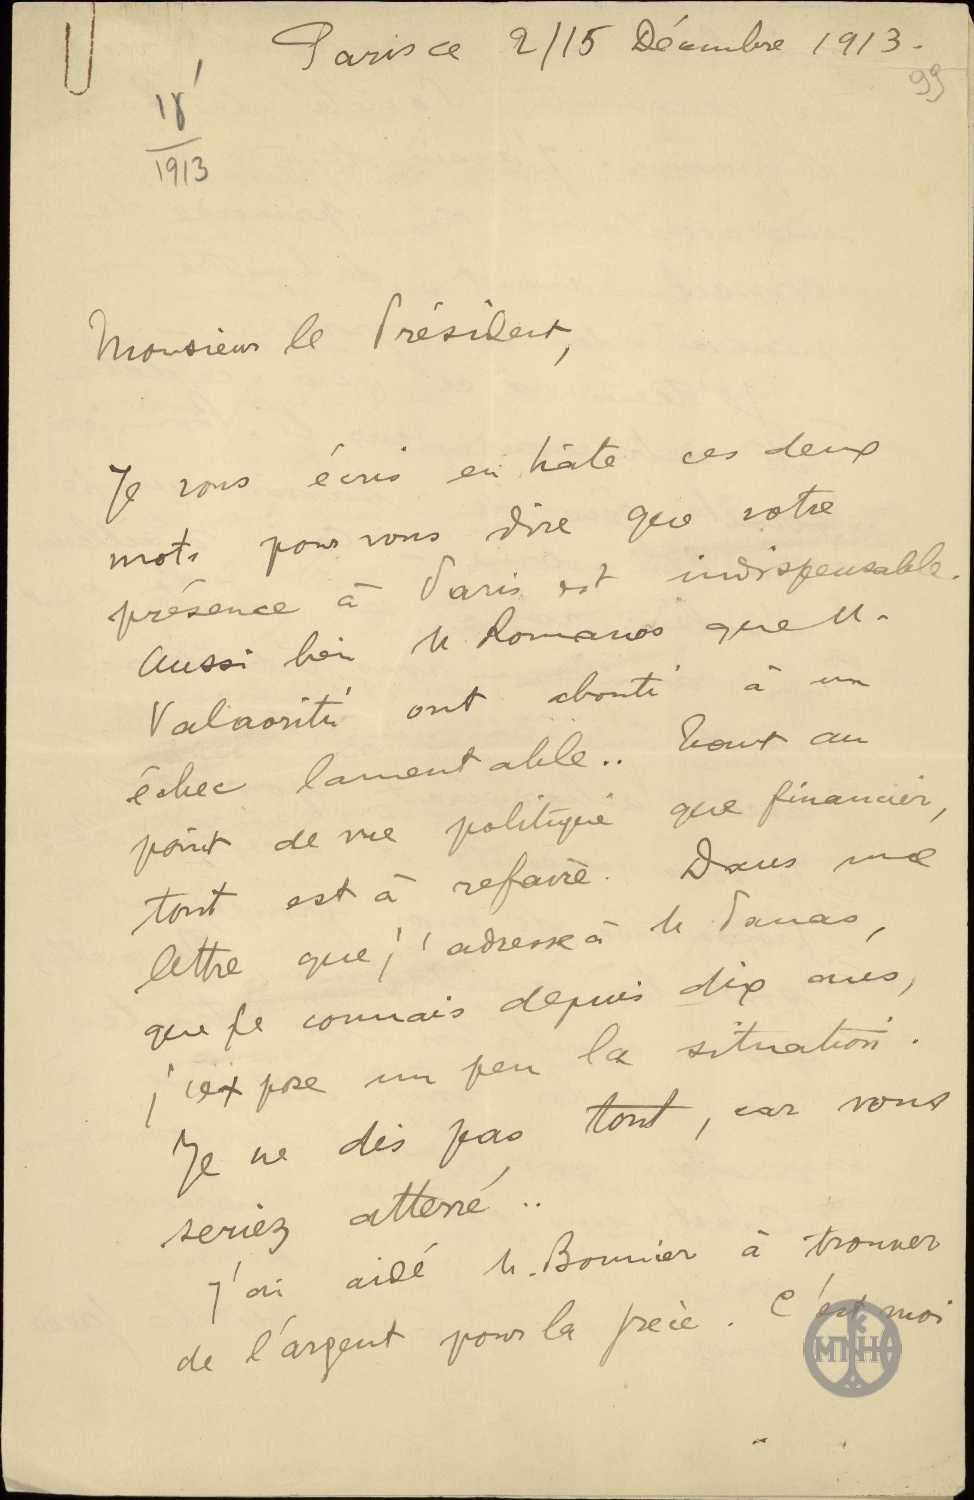 Paris ce 2/15 Décembre 1913.
99
18'
1913
Monsieur le Président,
Je vous écris en hâte ces deux
mots pour vous dire que votre
présence à Paris est indispensable.
Aussi bien M Romanos que M.
Valaoriti ont abouti à un
échec lamentable.. Tant au
point de vue politique que financier,
tout est à refaire. Dans une
lettre que j'adresse à M Panas,
que je connais depuis dix ans,
j'expose un peu la situation.
Je ne dis pas tout, car vous
seriez atterré..
J'ai aidé M. Bonnier à trouver
de l'argent pour la Grèce. C'est moi
MNH